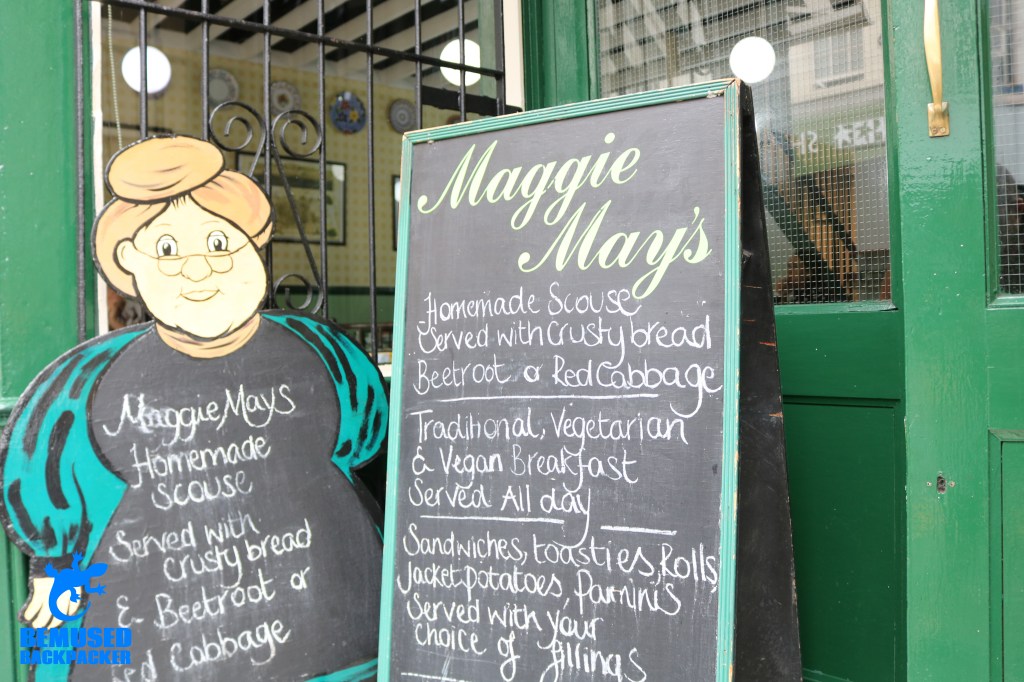 Maggie
May's
Homemade Scouse
Served with Crusty bread
Beetroot or Red Cabbage
Traditional, Vegetarian
& Vegan Breakfast
Served All day
Sandwiches, toasties, Rolls,
Jacket potatoes, Paninnis
Served with your
choice of fillings
Maggie Mays
Homemade
Scouse
Served with
crusty bread
& Beetroot or
Red Cabbage
BEMUSED
BACKPACKER